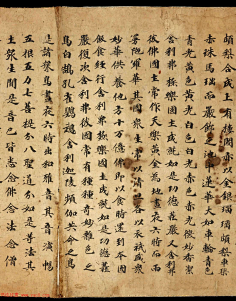 頗梨合成上有樓閣亦以金銀琉璃頗梨車渠
赤珠馬瑙而嚴飾之池中蓮華大如車輪青色
青光黃色黃光白色白光赤色赤光微妙香潔
舍利弗極樂國土成就如是功德莊嚴又舍利
弗彼佛國土常作天樂黃金為地晝夜六時而雨
曼陀羅華其國眾生常以清旦各以衣祴盛眾
妙華供養他方十万億佛即以食時還到本國
飯食經行舍利弗極樂國土成就如是功德莊
嚴復次舍利弗彼國常有種種奇妙雜色之
鳥白鵠孔雀鸚鵡舍利迦陵頻伽共命之鳥
是諸眾鳥晝夜六時出和雅音其音演暢
五根五力七菩提分八聖道分如是等法其
土眾生聞是音已皆悉念佛念法念僧